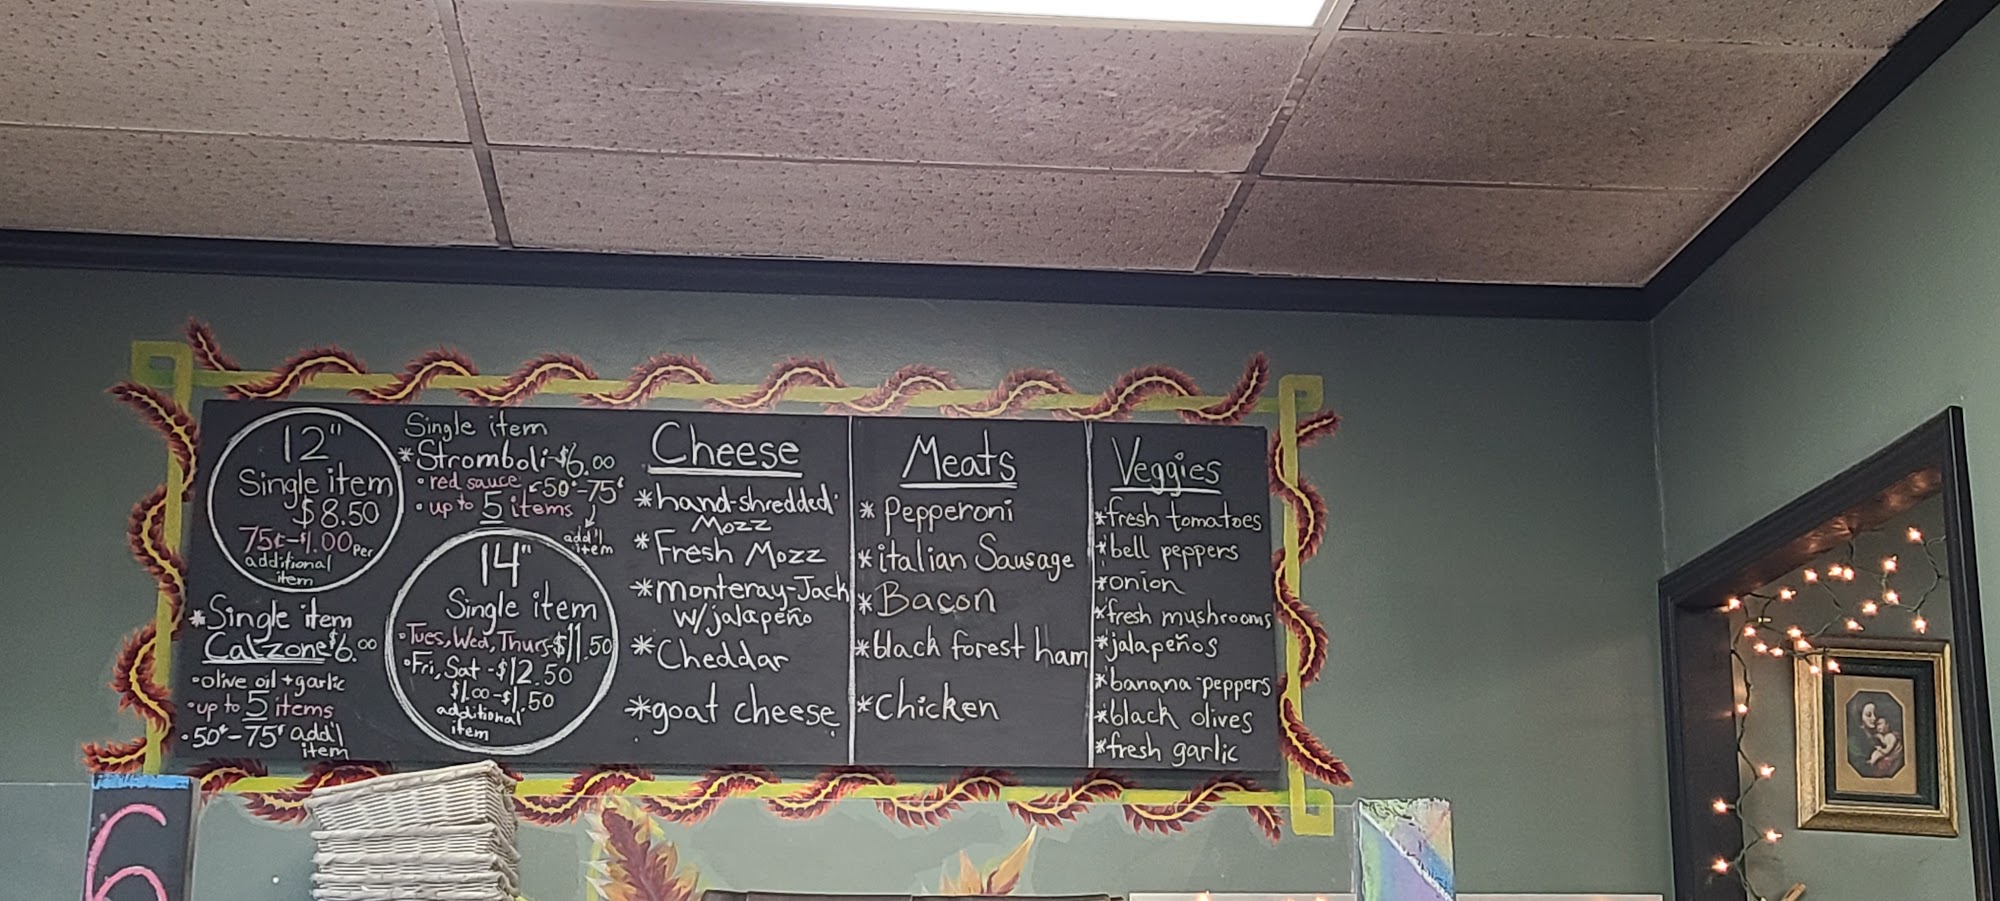 12"
Single item
$8.50
75¢-$1.00 Per
additional
item
*Single item
Calzone $6.00
•olive oil + garlic
•up to 5 items
•50¢-75¢ add'l
item
Single item
*Stromboli-$6.00
•red sauce •50¢-75¢
•up to 5 items
add'l
item
14"
Single item
•Tues, Wed, Thurs-$11.50
•Fri, Sat-$12.50
$1.00-$1.50
additional
item
Cheese
*hand-shredded
Mozz
*Fresh Mozz
*monteray-Jack
w/jalapeño
*Cheddar
*goat cheese
Meats
*Pepperoni
*italian Sausage
*Bacon
*black forest ham
*Chicken
Veggies
*fresh tomatoes
*bell peppers
*onion
*fresh mushrooms
*jalapeños
*banana-peppers
*black olives
*fresh garlic
6